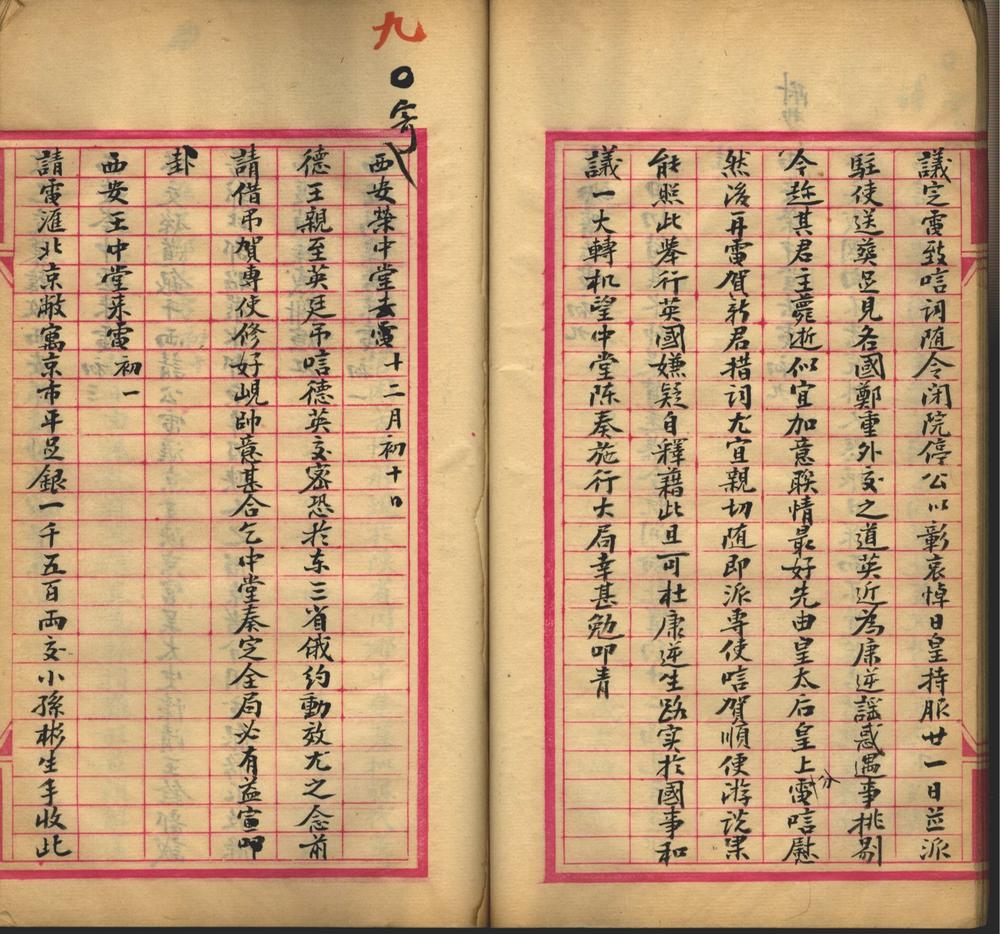 議定電致唁詞随令闭院停公以彰哀悼日皇持服廿一日並派
駐使送葬足見各國鄭重外交之道英近為康逆謡惑遇事挑剔
今趂其君主薨逝似宜加意联情最好先由皇太后皇上分電唁慰
然後再電賀新君措词尤宜親切随即派專使唁賀順便游说果
能照此舉行英國嫌疑自釋藉此且可杜康逆生路实於國事和
議一大轉机望中堂陈奏施行大局幸甚勉叩青
九
〇寄
西安榮中堂去電十二月初十日
德王親至英廷吊唁德英交密恐於东三省俄约動效尤之念前
請借吊賀專使修好峴帥意甚合乞中堂奏定全局必有益宣叩
卦
西安王中堂来電初一
請電滙北京敝寓京市平足銀一千五百両交小孫彬生手收此